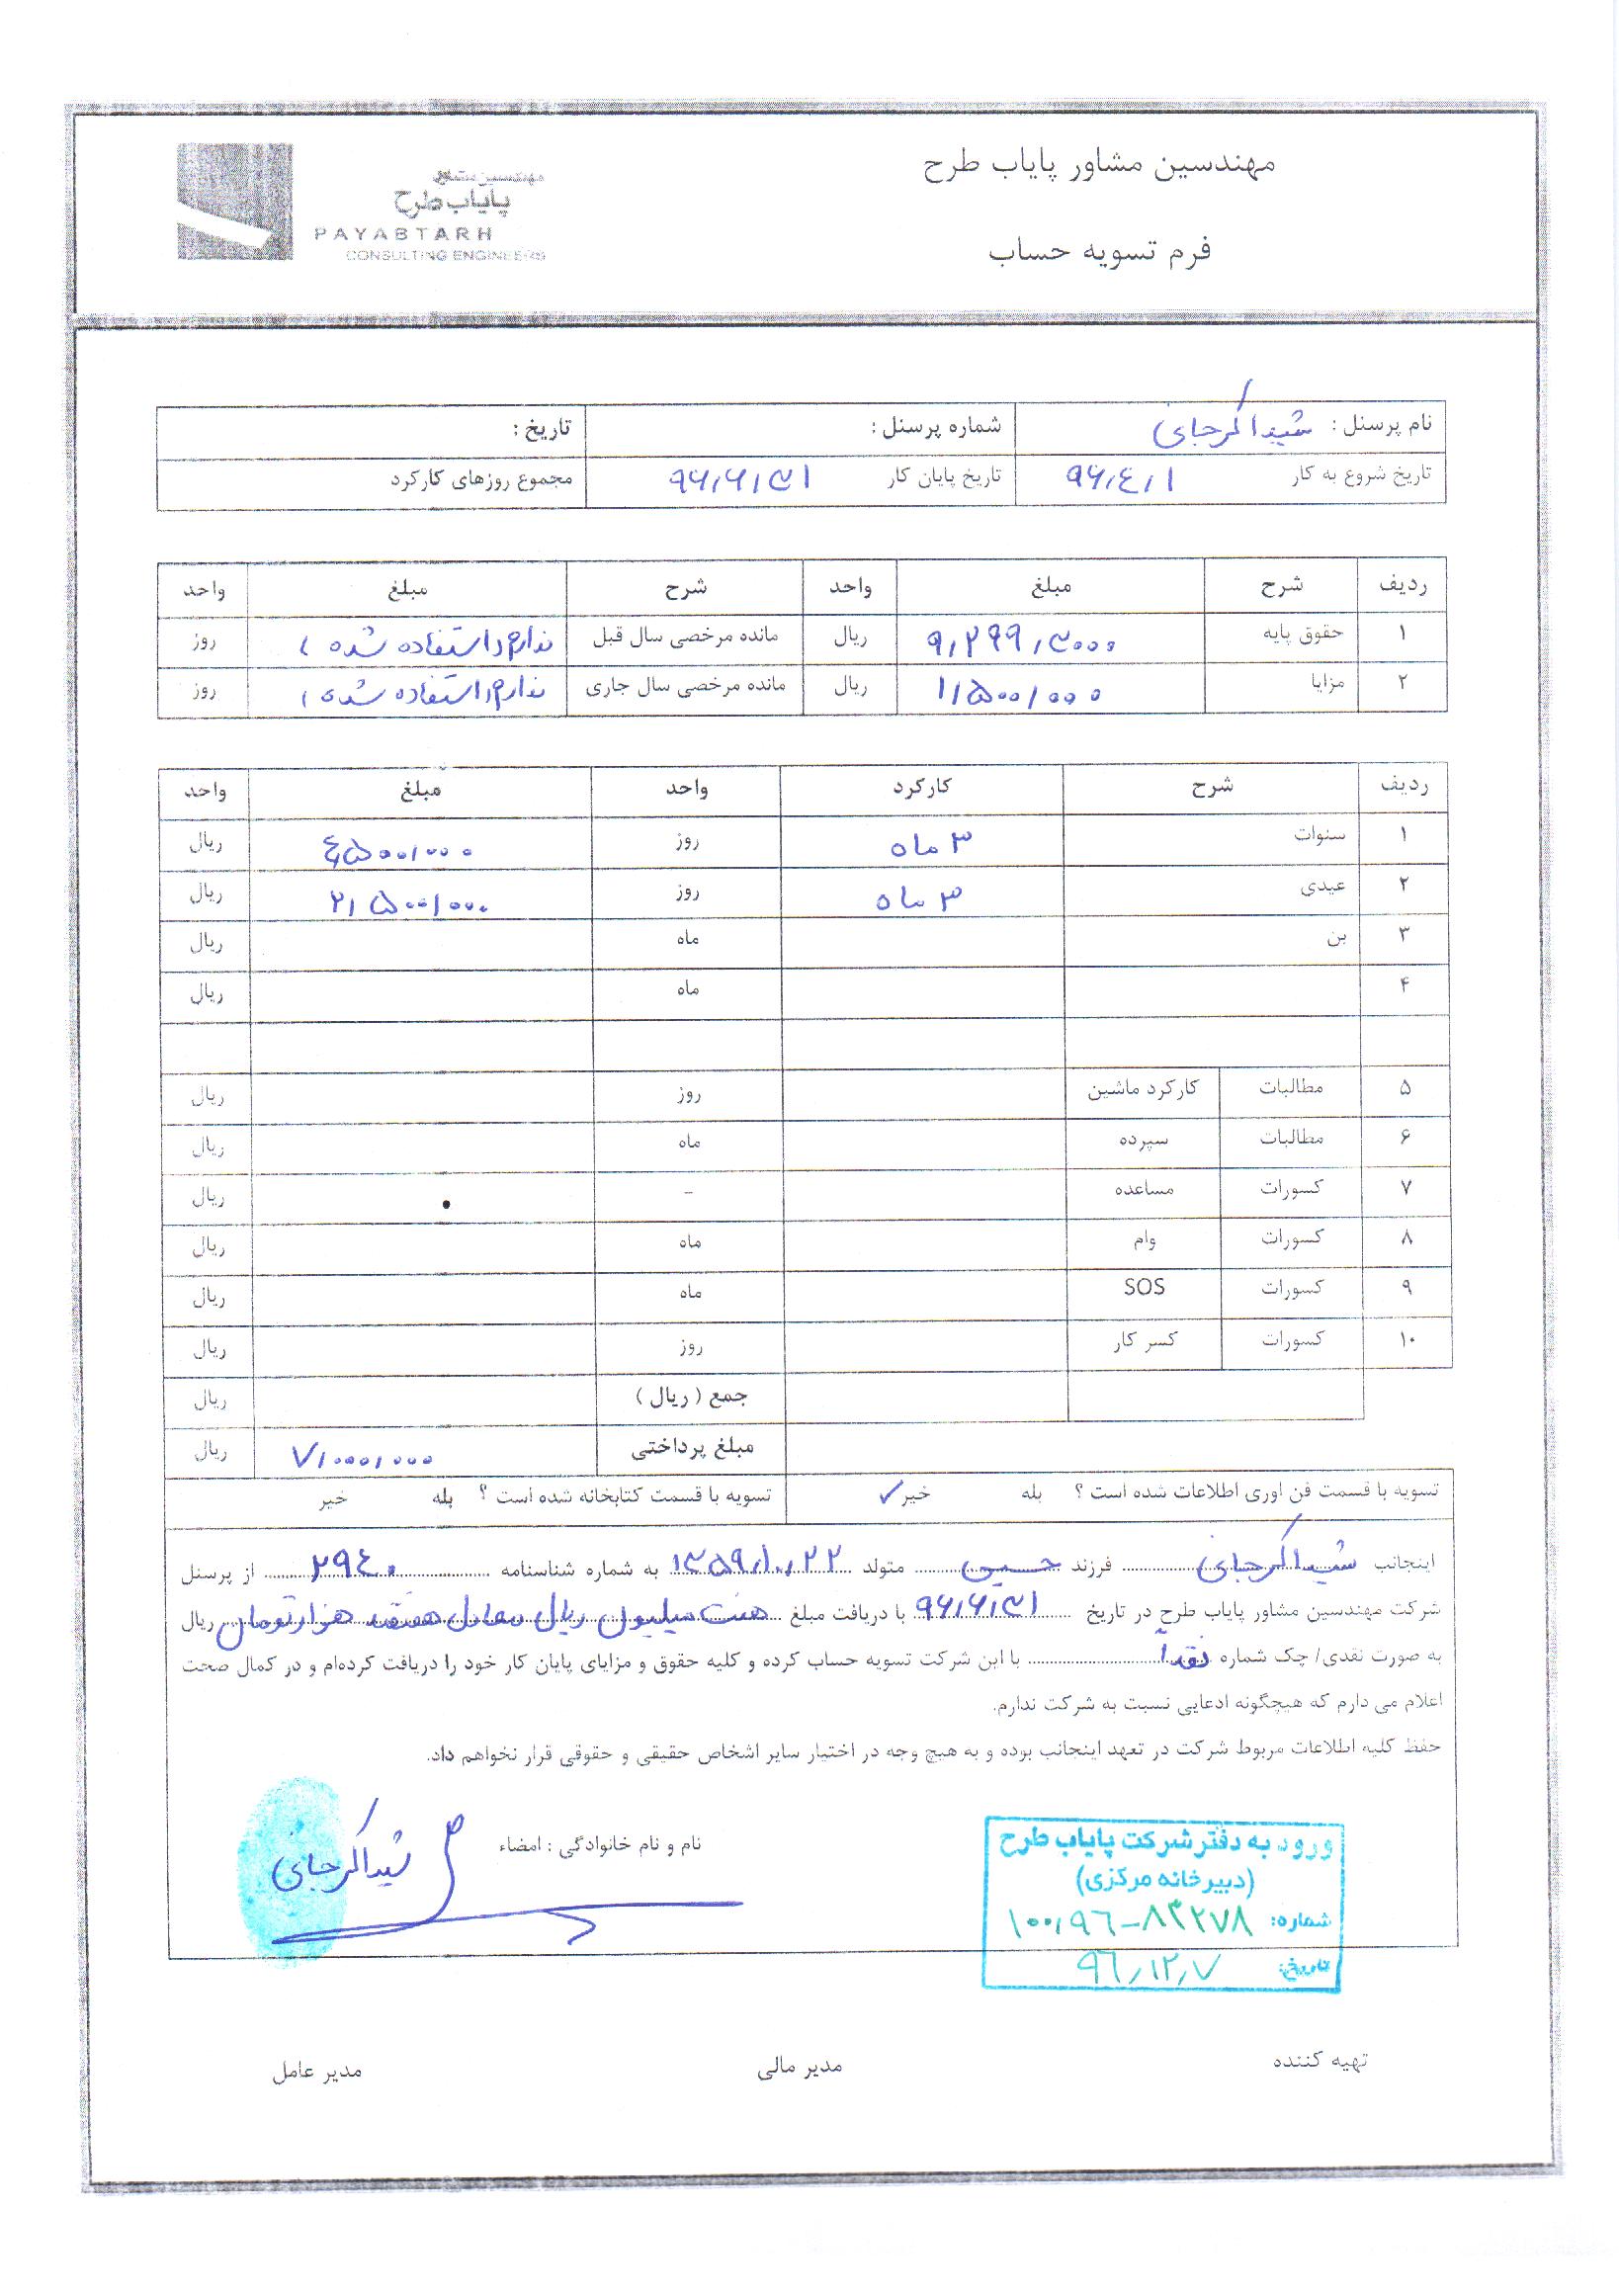 مهندسین مشاور پایاب طرح
فرم تسویه حساب
مهندسین مشاور
پایاب طرح
PAYABTARH
CONSULTING ENGINEERS
نام پرسنل : شیدا کرجانی شماره پرسنل : تاریخ :
تاریخ شروع به کار ۹۶٫۴٫۱ تاریخ پایان کار ۹۶٫۶٫۳۱ مجموع روزهای کارکرد
ردیف شرح مبلغ واحد شرح مبلغ واحد
۱ حقوق پایه ۹٫۲۹۹٫۳۰۰۰ ریال مانده مرخصی سال قبل ندارم (استفاده شده) روز
۲ مزایا ۱٫۵۰۰٫۰۰۰ ریال مانده مرخصی سال جاری ندارم (استفاده شده) روز
ردیف شرح کارکرد واحد مبلغ واحد
۱ سنوات ۳ ماه روز ۴٫۵۰۰٫۰۰۰ ریال
۲ عیدی ۳ ماه روز ۲٫۵۰۰٫۰۰۰ ریال
۳ بن ماه ریال
۴ ماه ریال
۵ مطالبات کارکرد ماشین روز ریال
۶ مطالبات سپرده ماه ریال
۷ کسورات مساعده - ریال
۸ کسورات وام ماه ریال
۹ کسورات SOS ماه ریال
۱۰ کسورات کسر کار روز ریال
جمع ( ریال ) ریال
مبلغ پرداختی ۷٫۰۰۰٫۰۰۰ ریال
تسویه با قسمت فن اوری اطلاعات شده است ؟ بله خیر ✓ تسویه با قسمت کتابخانه شده است ؟ بله خیر
اینجانب شیدا کرجانی فرزند حسین متولد ۱۳۵۹٫۱۰٫۲۲ به شماره شناسنامه ۲۹۴۰ از پرسنل
شرکت مهندسین مشاور پایاب طرح در تاریخ ۹۶٫۶٫۳۱ با دریافت مبلغ هفت میلیون ریال معادل هفتصد هزار تومان ریال
به صورت نقدی/ چک شماره نقداً با این شرکت تسویه حساب کرده و کلیه حقوق و مزایای پایان کار خود را دریافت کرده‌ام و در کمال صحت
اعلام می دارم که هیچگونه ادعایی نسبت به شرکت ندارم.
حفظ کلیه اطلاعات مربوط شرکت در تعهد اینجانب بوده و به هیچ وجه در اختیار سایر اشخاص حقیقی و حقوقی قرار نخواهم داد.
نام و نام خانوادگی : امضاء شیدا کرجانی
ورود به دفتر شرکت پایاب طرح
(دبیرخانه مرکزی)
شماره: ۱۰۰٫۹۶-۸۳۲۷۸
تاریخ: ۹۶٫۱۲٫۷
تهیه کننده مدیر مالی مدیر عامل